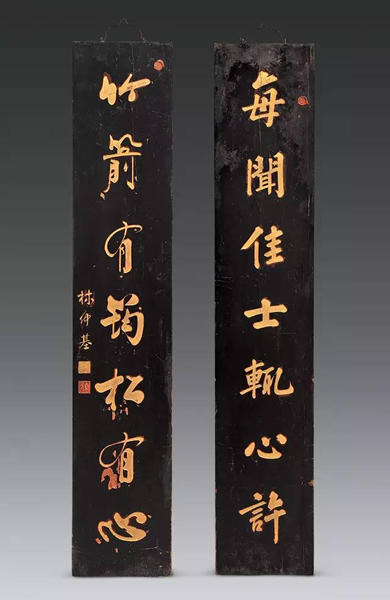 每聞佳士輒心許
竹箭有筠松有心
林仲基